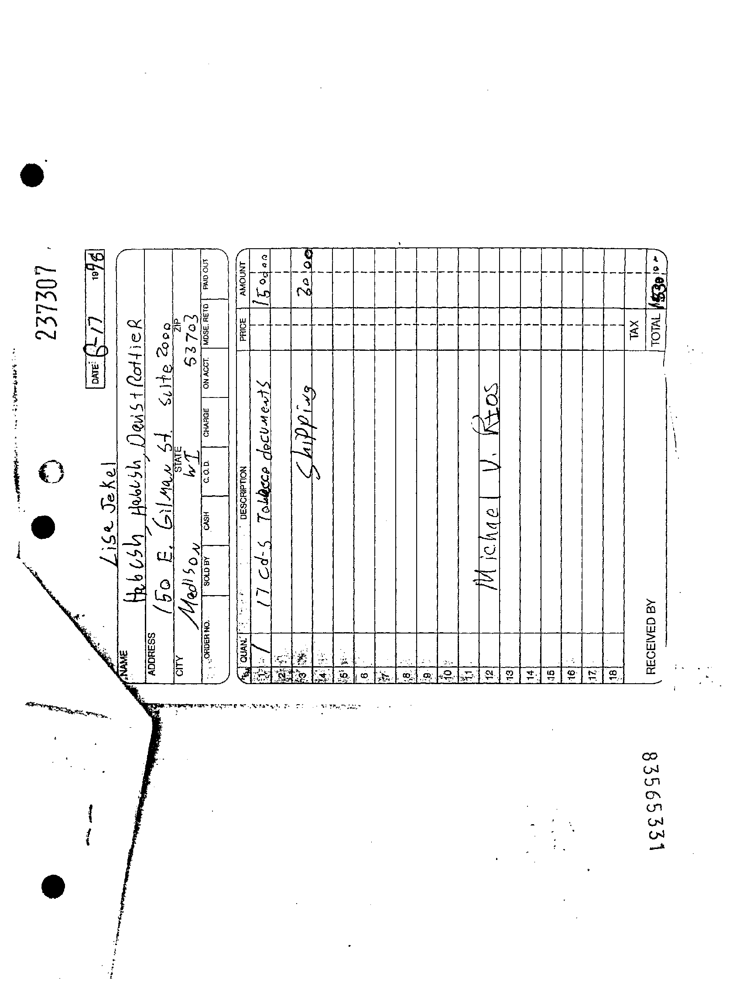 237307
DATE 8-17 1998
Lise Jekel
NAME Habush Habush, Davis + Rottier
ADDRESS 150 E. Gilman St. Suite 2000
CITY Madison STATE WI ZIP 53703
ORDER NO. SOLD BY CASH C.O.D. CHARGE ON ACCT. MDSE. RET'D PAID OUT
QUAN. DESCRIPTION PRICE AMOUNT
1 1 17 cd-s Tobacco documents 1500 00
2
3 Shipping 30 00
4
5
6
7
8
9
10
11
12 Michael V. Rios
13
14
15
16
17
18
TAX
RECEIVED BY TOTAL
83565331